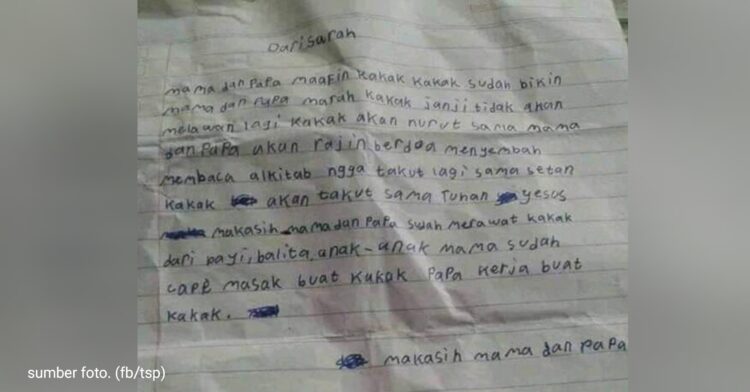 Dari sarah
mama dan papa maafin kakak kakak sudah bikin
mama dan papa marah kakak janji tidak akan
melawan lagi kakak akan nurut sama mama
dan papa akan rajin berdoa menyembah
membaca alkitab ngga takut lagi sama setan
kakak akan takut sama Tuhan yesus
makasih mama dan papa sudah merawat kakak
dari bayi, balita, anak-anak mama sudah
cape masak buat kakak papa kerja buat
kakak.
makasih mama dan papa
sumber foto. (fb/tsp)